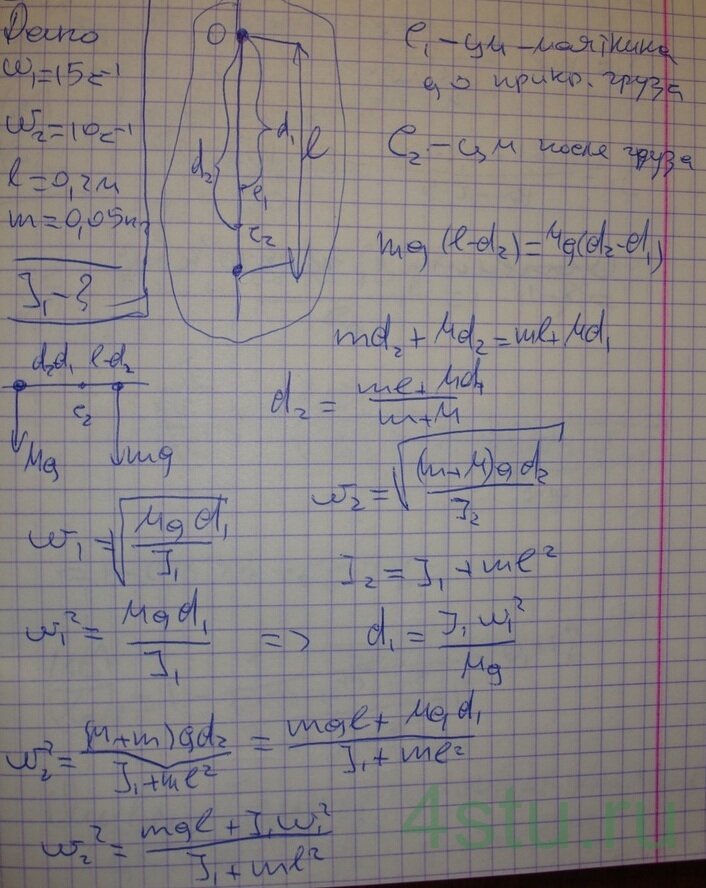 Дано
ω₁=15с⁻¹
ω₂=10с⁻¹
l=0,2м
m=0,05кг
J₁-?
O
d₂
d₁
l
c₁
c₂
C₁-цм-маятника
до прикр. груза
C₂-цм после груза
mg(l-d₂)=Mg(d₂-d₁)
md₂+Md₂=ml+Md₁
d₂d₁ l-d₂
c₂
Mg
mg
d₂=(ml+Md₁)/(m+M)
ω₂=√((m+M)gd₂/J₂)
ω₁=√(Mgd₁/J₁)
J₂=J₁+ml²
ω₁²=Mgd₁/J₁ => d₁=J₁ω₁²/Mg
ω₂²=(M+m)gd₂/(J₁+ml²)=(mgl+Mgd₁)/(J₁+ml²)
ω₂²=(mgl+J₁ω₁²)/(J₁+ml²)
4stu.ru